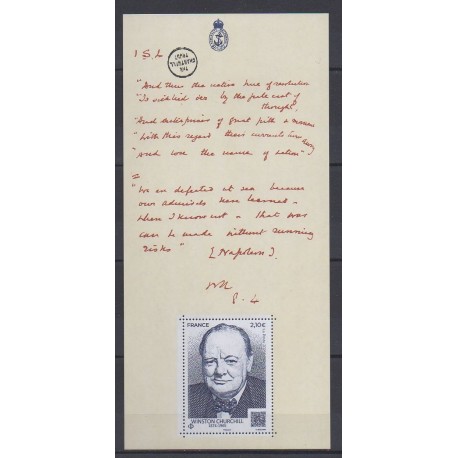 1 S.L
THE CHARTWELL TRUST
"And thus the native hue of resolution
"Is sicklied o'er by the pale cast of
thought,
"And enterprises of great pith & moment
"With this regard their currents turn awry
"And lose the name of action"
=
"We are defeated at sea because
our admirals have learned –
where I know not – that war
can be made without running
risks" [Napoleon].
P. 4
FRANCE 2,10€
WINSTON CHURCHILL
1874-1965